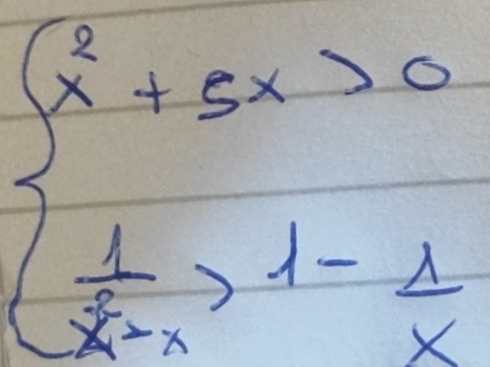 x² + 5x > 0
1/(x² - x) > 1 - 1/x